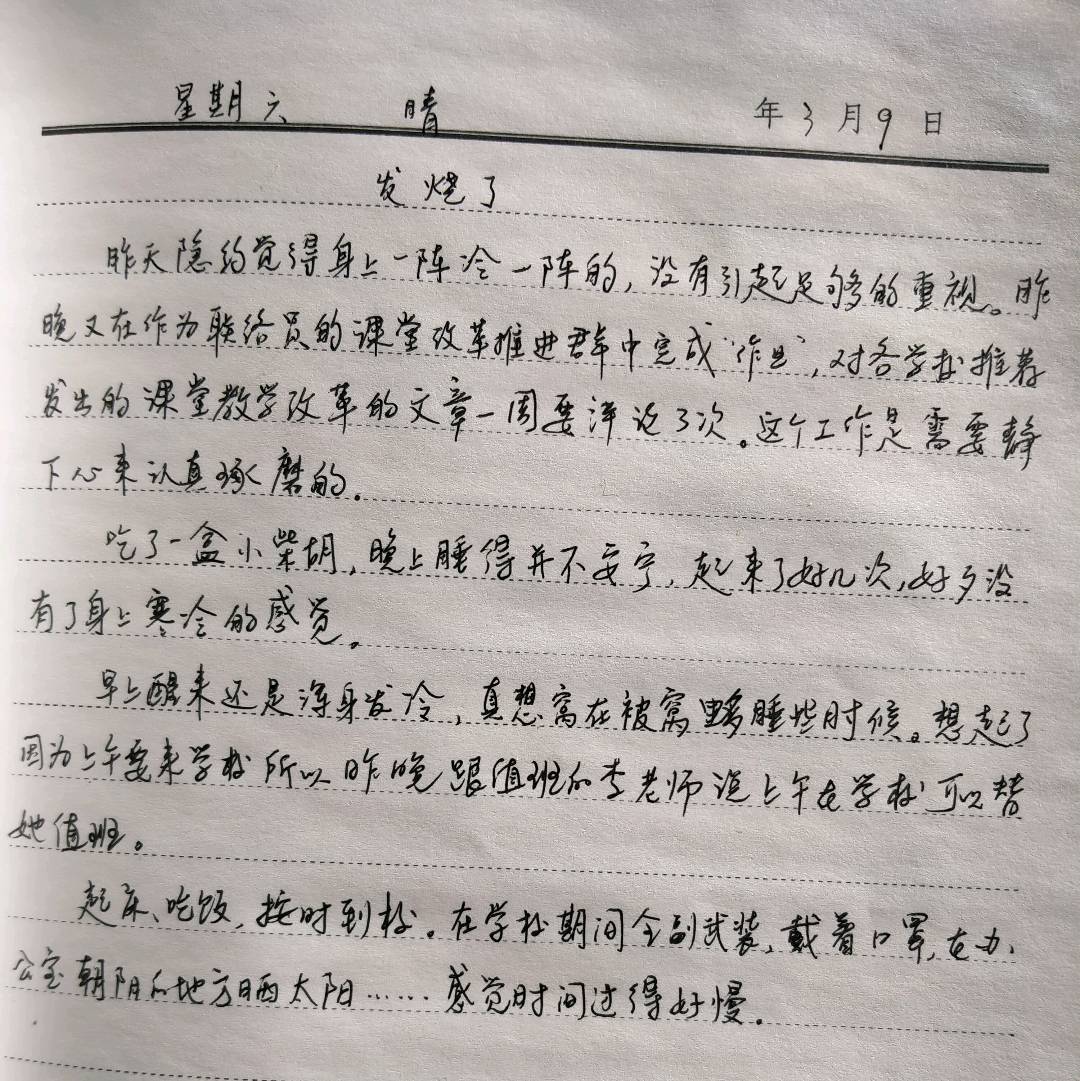 星期六 晴 年3月9日
发烧了
昨天隐约觉得身上一阵冷一阵的,没有引起足够的重视。昨
晚又在作为联络员的课堂改革推进群中完成“作业”,对各学校推荐
发出的课堂教学改革的文章一周要评论3次。这个工作是需要静
下心来认真琢磨的。
吃了一盒小柴胡,晚上睡得并不安宁,起来了好几次,好歹没
有了身上寒冷的感觉。
早上醒来还是浑身发冷,真想窝在被窝里多睡些时候。想起了
因为上午要来学校所以昨晚跟值班的李老师说上午在学校可以替
她值班。
起床、吃饭,按时到校。在学校期间全副武装,戴着口罩,在办
公室朝阳的地方晒太阳……感觉时间过得好慢。